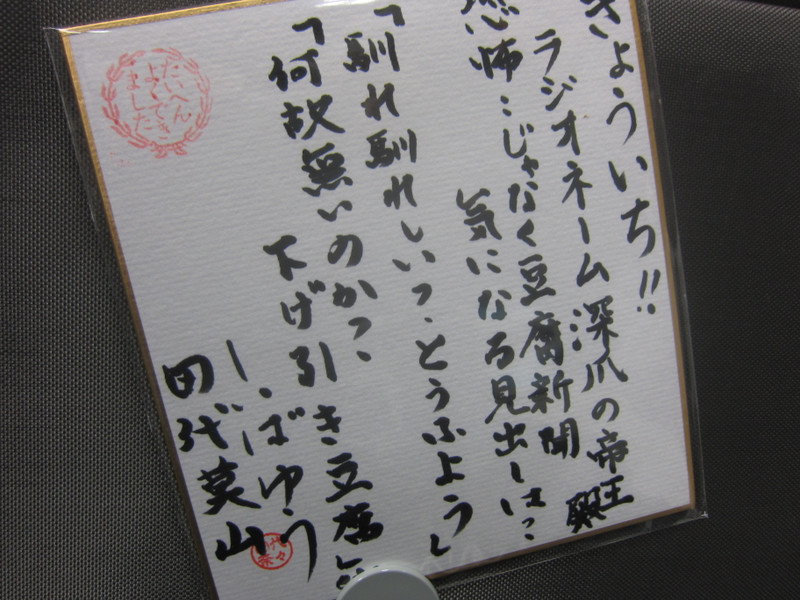 きょういち!!
ラジオネーム深爪の帝王殿
恐怖:じゃなく豆腐新聞
気になる見出しは:
「馴れ馴れしいっ、とうふよう」
「何故無いのかっ、
下げ引き豆腐」
しばゆう
田代莫山
たいへん
よくでき
ました